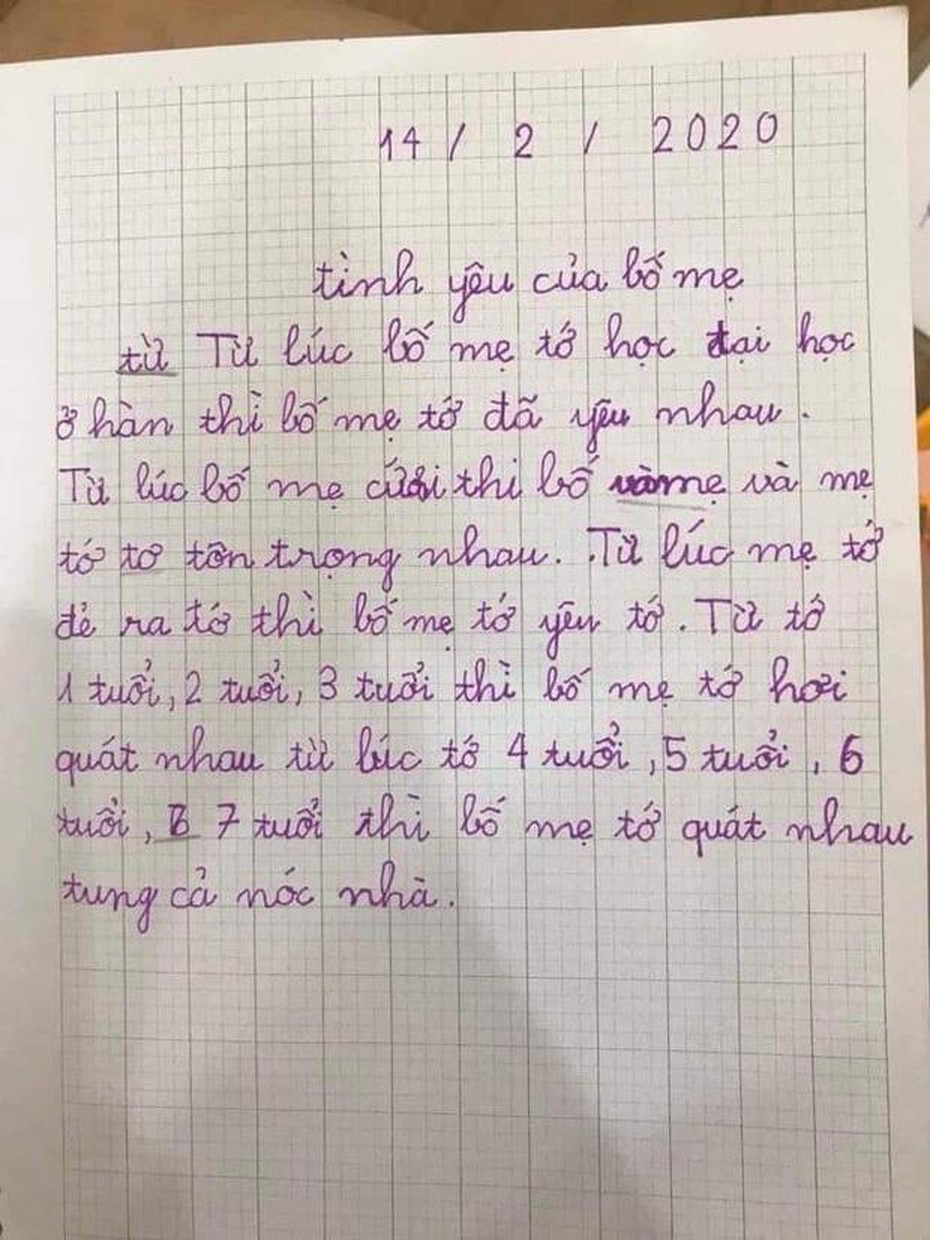 14 / 2 / 2020
tình yêu của bố mẹ
từ Từ lúc bố mẹ tớ học đại học
ở hàn thì bố mẹ tớ đã yêu nhau.
Từ lúc bố mẹ cưới thì bố và mẹ và mẹ
tớ tơ tôn trọng nhau. Từ lúc mẹ tớ
đẻ ra tớ thì bố mẹ tớ yêu tớ. Từ tớ
1 tuổi, 2 tuổi, 3 tuổi thì bố mẹ tớ hơi
quát nhau từ lúc tớ 4 tuổi, 5 tuổi, 6
tuổi, 6 7 tuổi thì bố mẹ tớ quát nhau
tung cả nóc nhà.